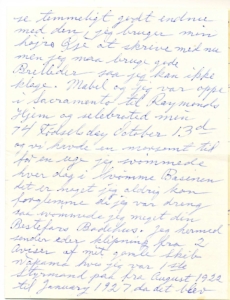 se temmeligt godt endnu
med den, jeg bruger min
højre Øje at skrive med nu
men jeg maa bruge gode
Breller saa jeg kan ikke
klage. Mebel og jeg var oppe
i Sacramento til Raymonds
Hjem og selebrated min
74 Födselsdag October 13d
og vi havde en morsomt tid
for en uge jeg svömmede
hver dag i Svömme Baseren
det er noget jeg aldrig kan
forglemme da jeg var dreng
saa svömmede jeg meget den
Bestefars Badehus. Jeg hermed
sender eder klipning fra 2
Aviser af mit gamle Skib
hvor jeg var 1ste
Styrmand paa fra August 1922
til January 1927 da det blev